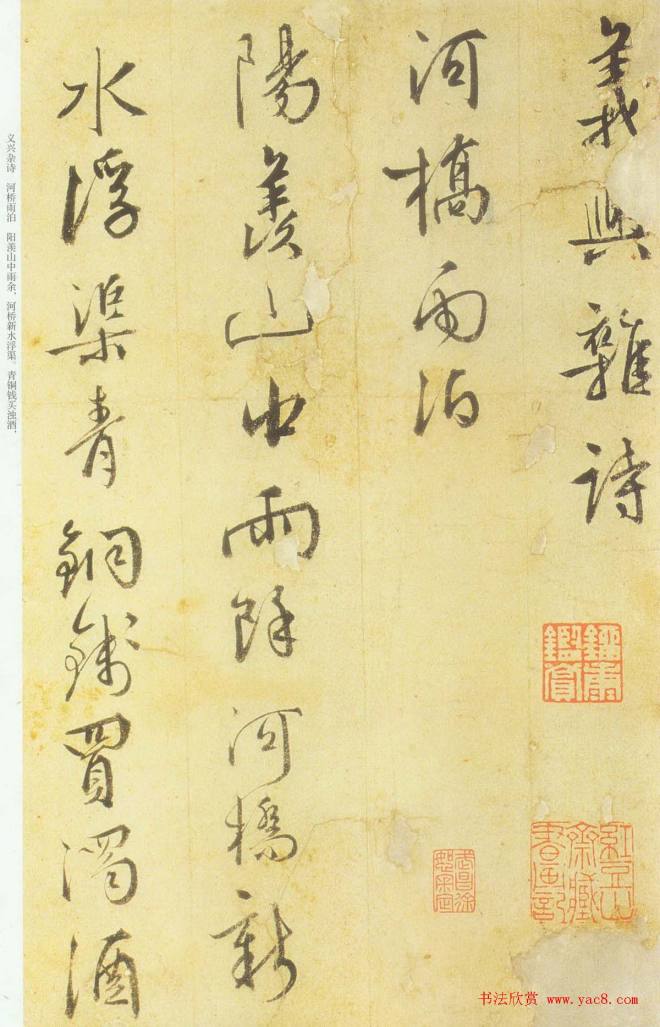 義興雜詩
河橋雨泊
陽羨山中雨餘河橋新
水浮渠青銅錢買濁酒
义兴杂诗　河桥雨泊　阳羡山中雨余，河桥新水浮渠。青铜钱买浊酒，
书法欣赏 www.yac8.com